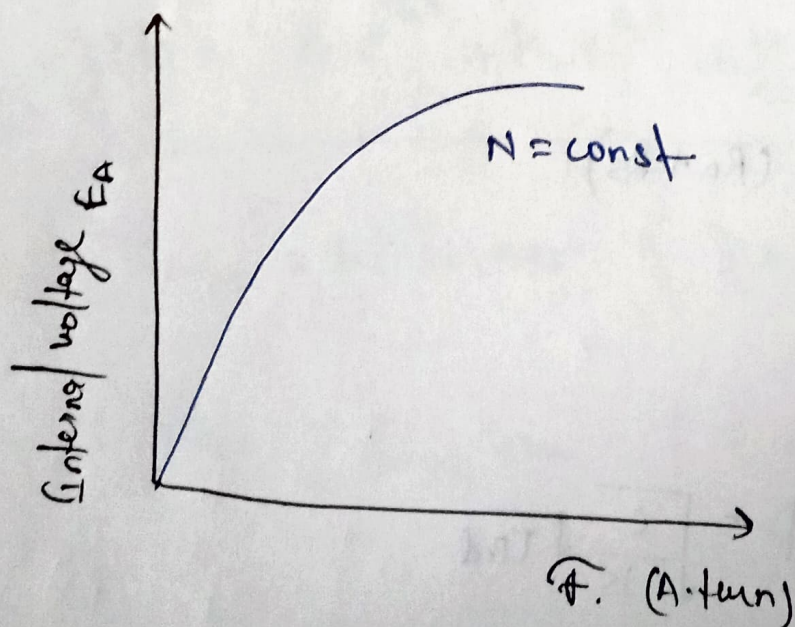 Internal voltage EA
N = const
F. (A.turn)